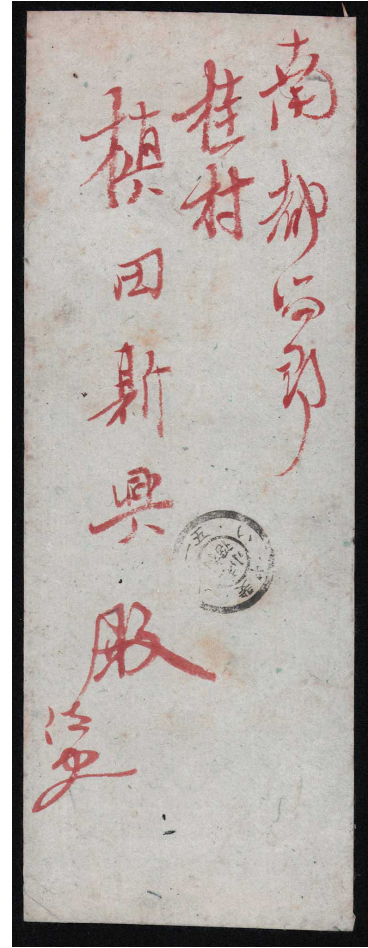 南都留郡
桂村
槙田斯興 殿